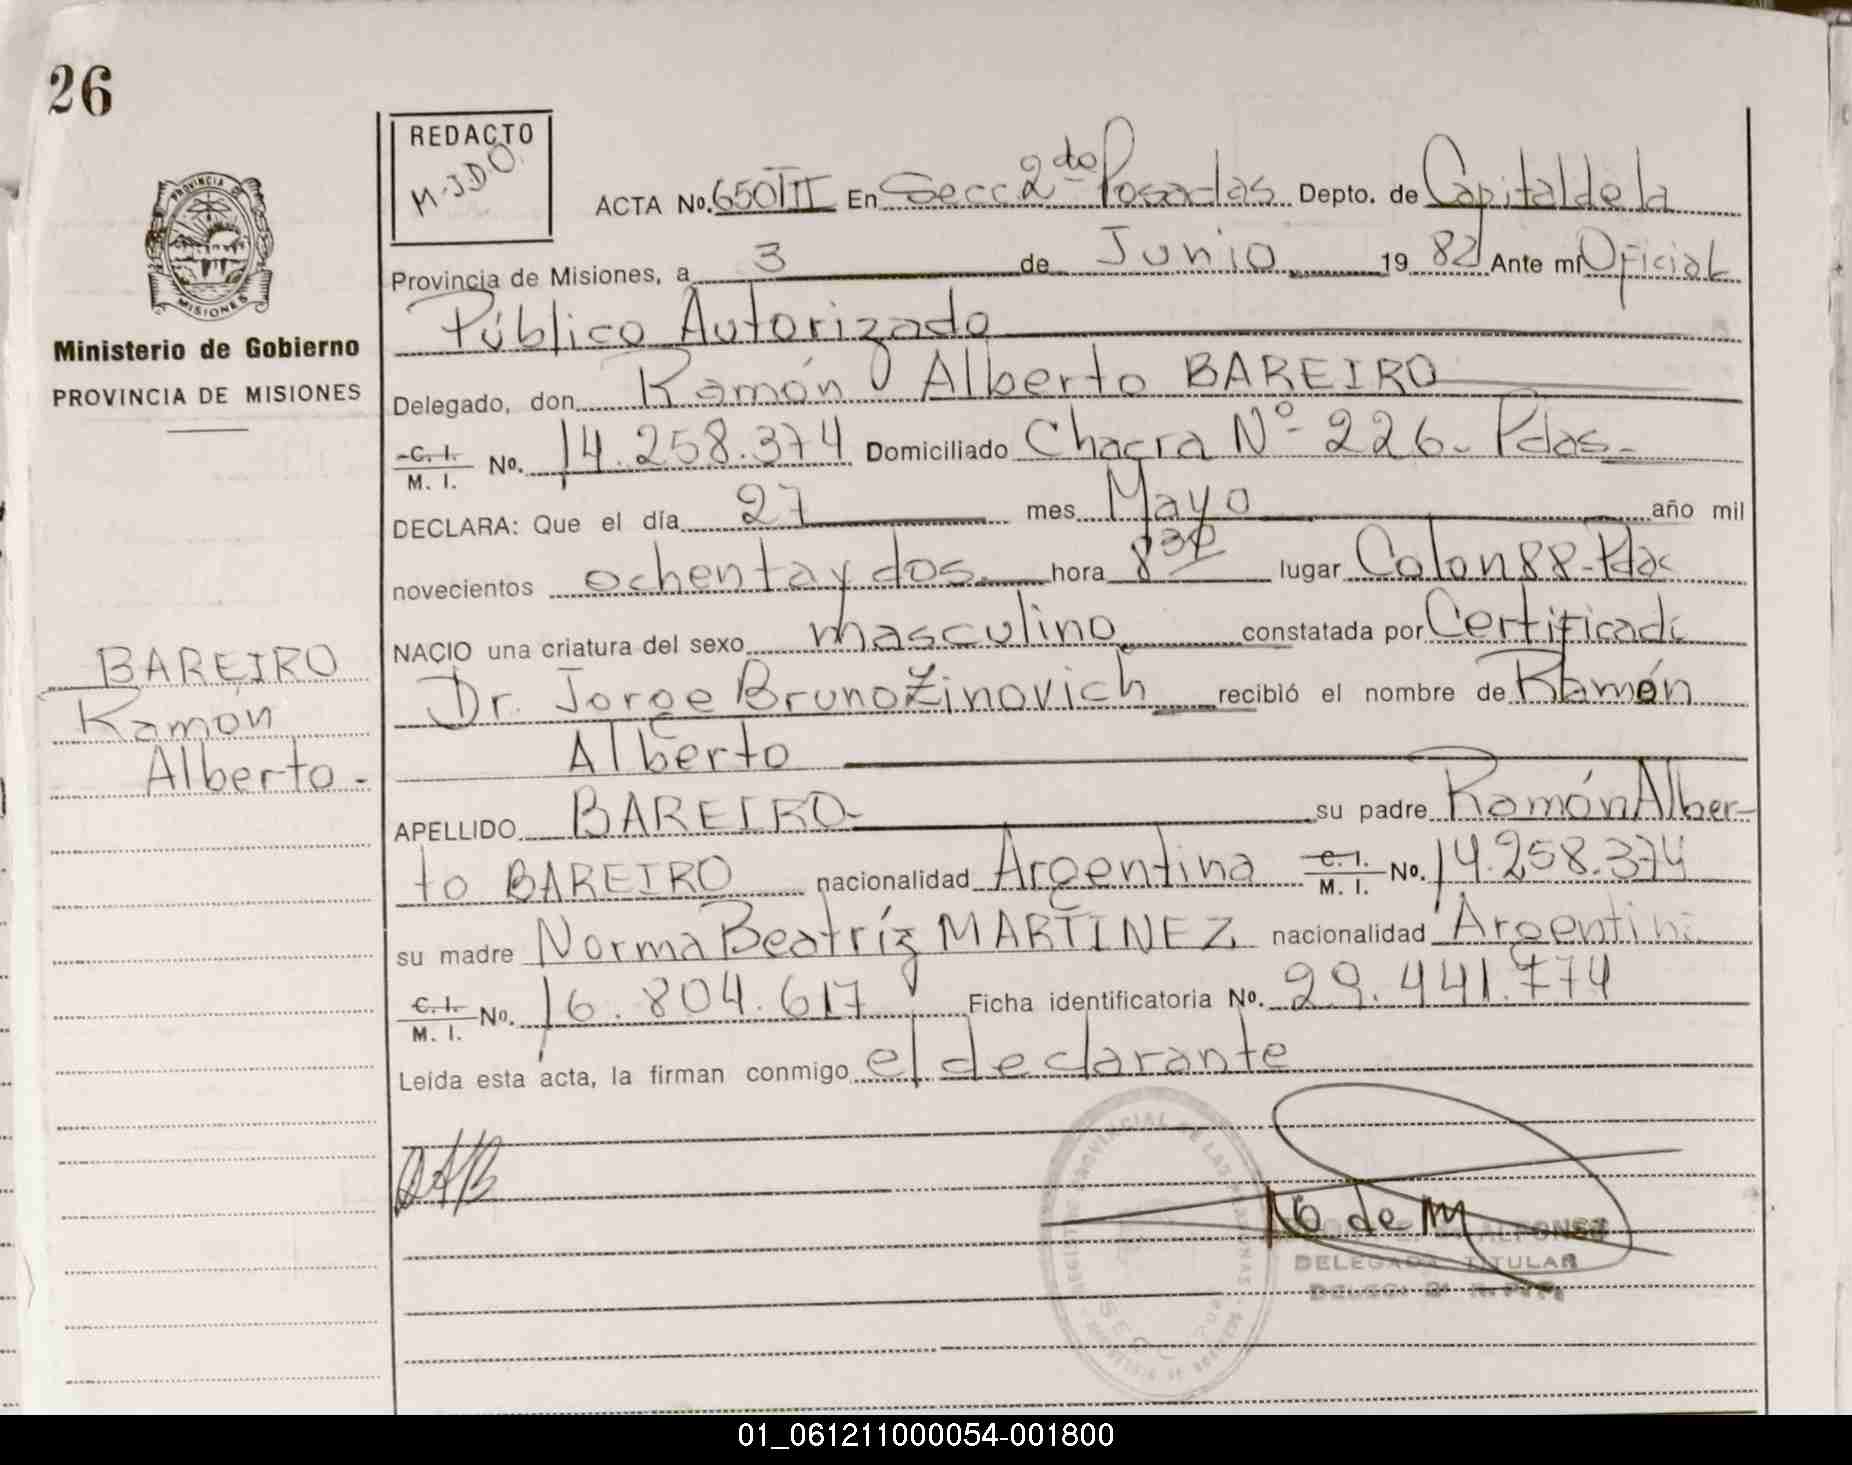 26
REDACTO
M.J.D.O.
ACTA No. 650 III En Secc 2da Posadas Depto. de Capital de la
Provincia de Misiones, a 3 de Junio 1982 Ante mi Oficial
Público Autorizado
Delegado, don Ramón Alberto BAREIRO
C. I. M. I. No. 14.258.374 Domiciliado Chacra Nº 226. Pdas.
DECLARA: Que el día 27 mes Mayo año mil
novecientos ochenta y dos hora 8 30 lugar Colon 88-Pdas
NACIO una criatura del sexo masculino constatada por Certificado
Dr. Jorge Bruno Zinovich recibió el nombre de Ramón
Alberto
APELLIDO BAREIRO su padre Ramón Alber-
to BAREIRO nacionalidad Argentina C. I. M. I. No. 14.258.374
su madre Norma Beatríz MARTINEZ nacionalidad Argentina
C. I. M. I. No. 16.804.617 Ficha identificatoria No. 29.441.774
Leída esta acta, la firman conmigo el declarante
PROVINCIA DE MISIONES
Ministerio de Gobierno
PROVINCIA DE MISIONES
BAREIRO
Ramón
Alberto.-
No de M
DELEGADA TITULAR
01_061211000054-001800